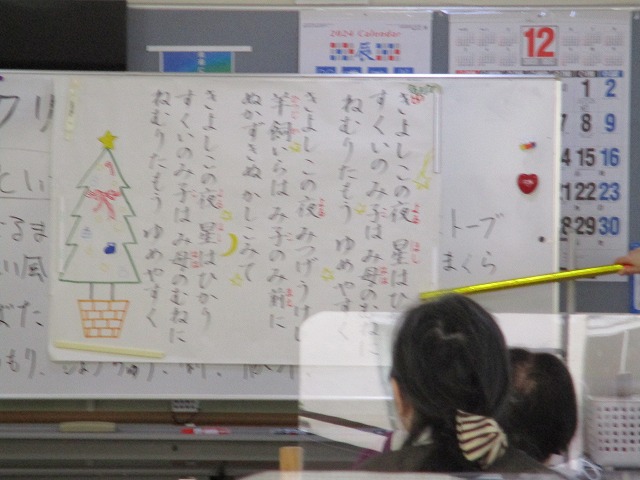 2024 Calendar
辰
12
1 2
8 9
14 15 16
21 22 23
28 29 30
きよしこの夜 星はひ
すくいのみ子は み母のむねに
ねむりたもう ゆめやすく
きよしこの夜 みつげうけし
羊飼いらは み子のみ前に
ぬかずきぬ かしこみて
きよしこの夜 星はひかり
すくいのみ子は み母のむねに
ねむりたもう ゆめやすく
トーブ
まくら
クリ
とい
るま
い風
ばた